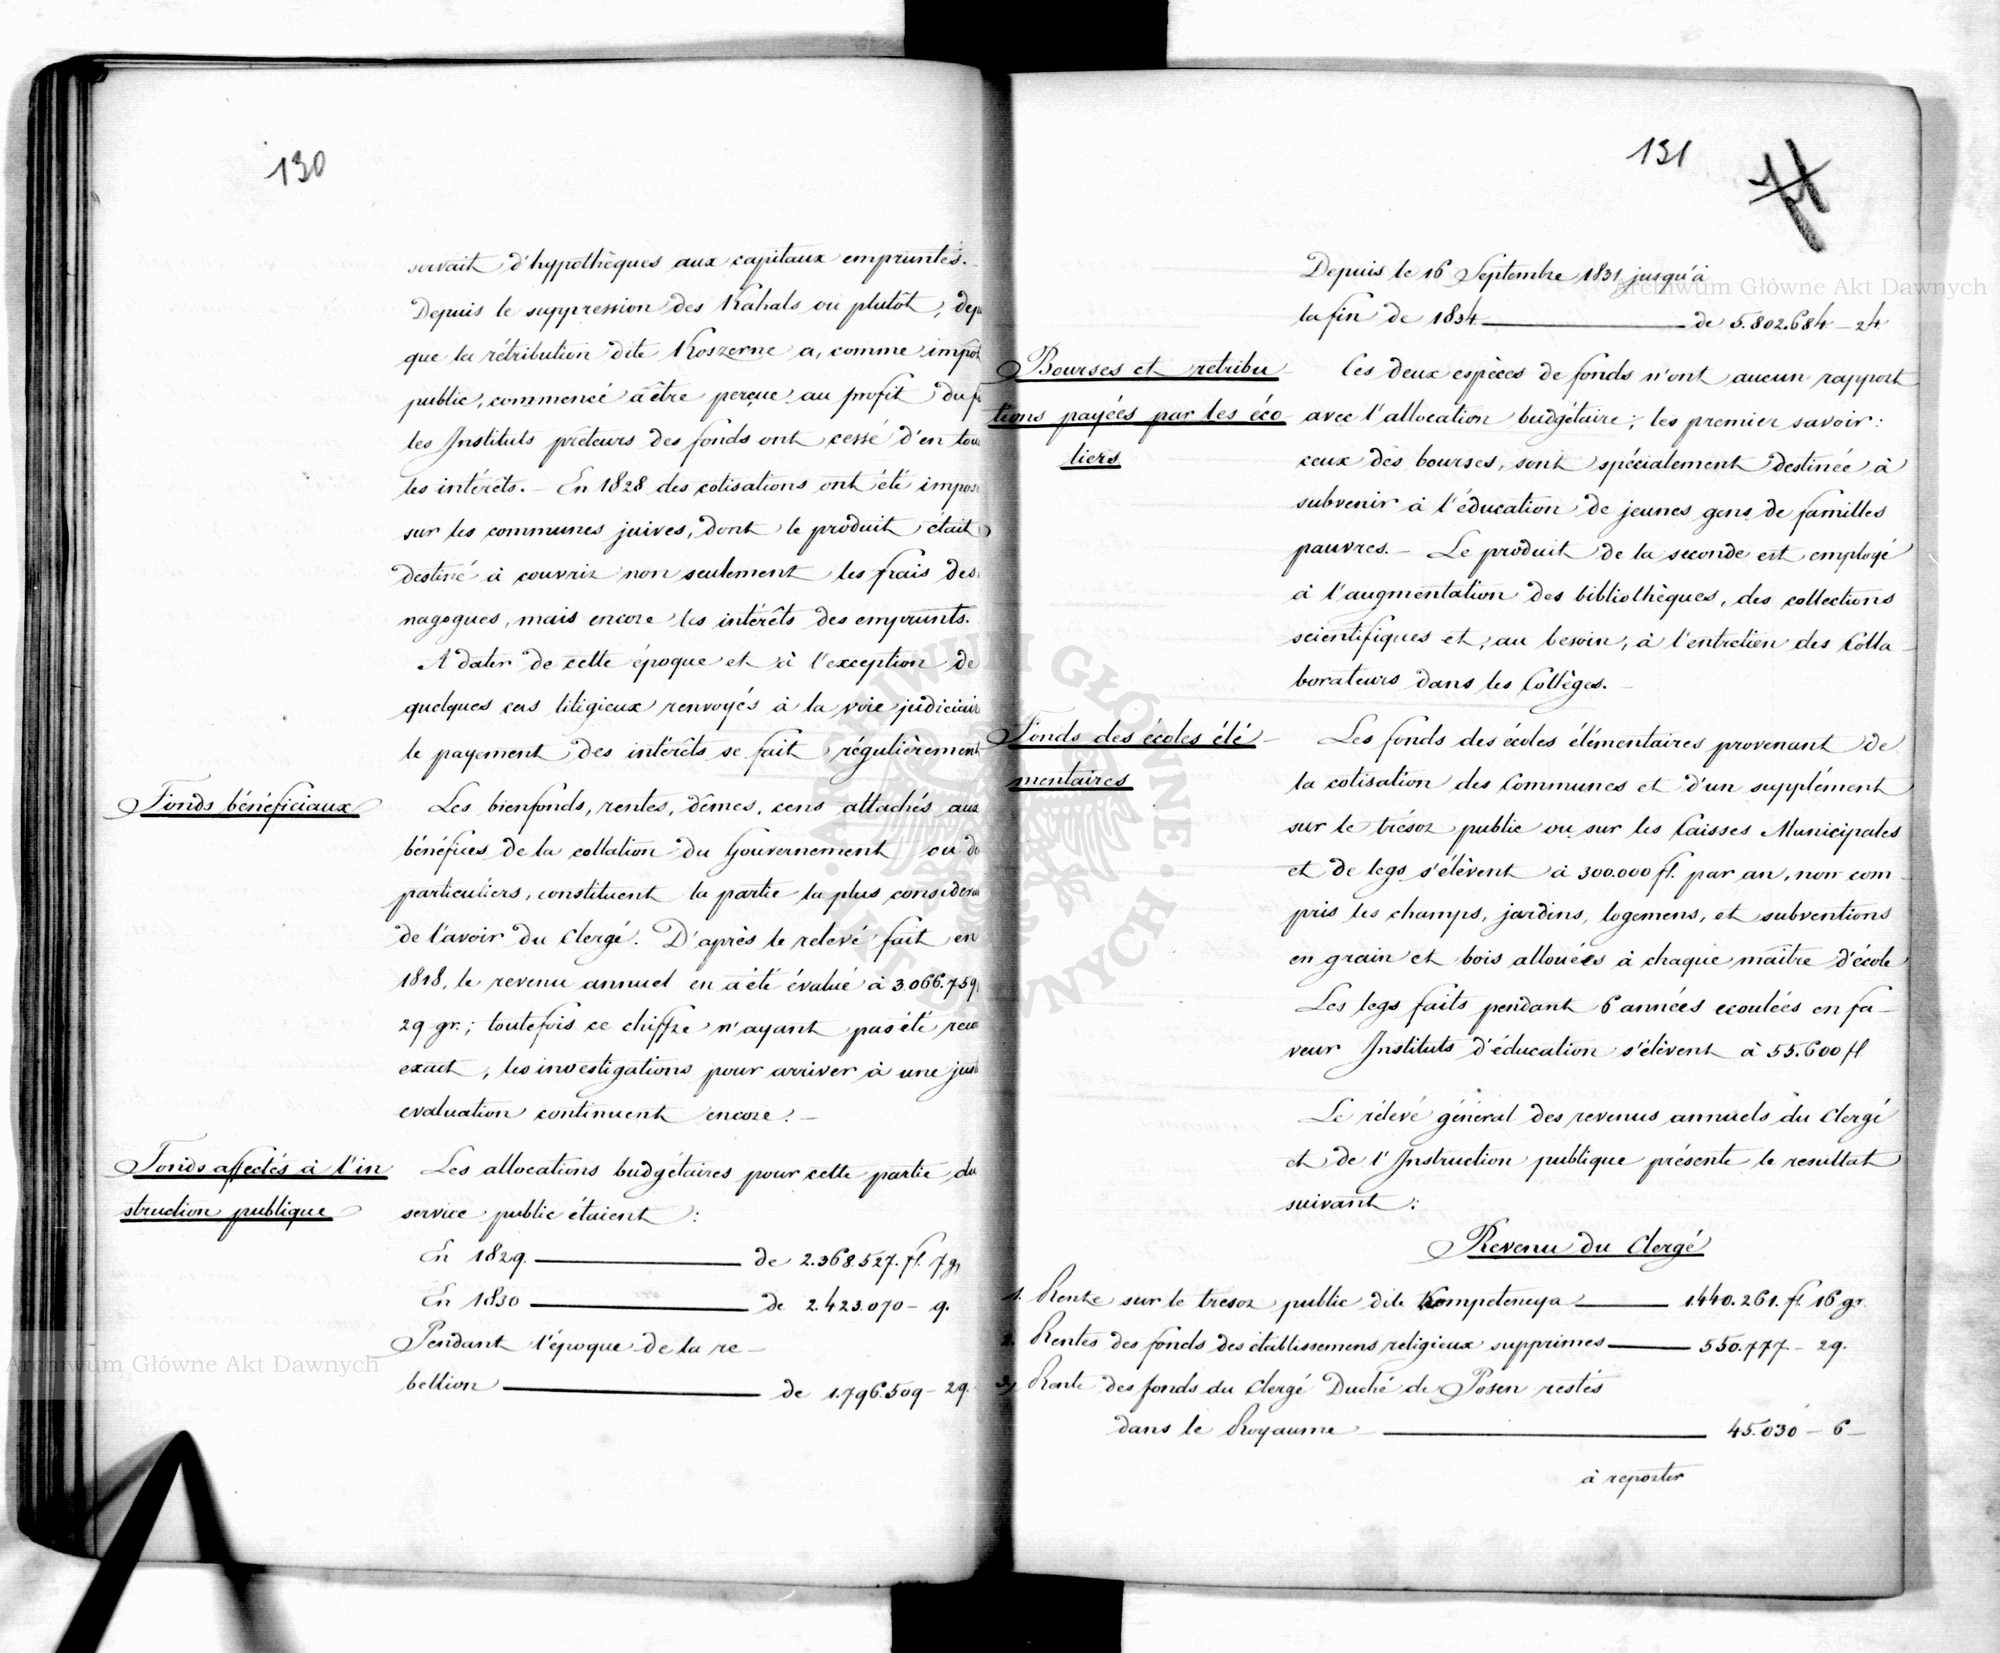 130
servait d'hypothèques aux capitaux empruntés.
Depuis le suppression des Kahals ou plutôt, dep
que la rétribution dite Koszerne a, comme impot
public, commencé à être perçue au profit du f
les Instituts prêteurs des fonds ont cessé d'en tou
les intérêts. – En 1828 des cotisations ont été impos
sur les communes juives, dont le produit était
destiné à couvrir non seulement les frais des
nagogues, mais encore les intérêts des emprunts.
A dater de cette époque et à l'exception de
quelques cas litigieux renvoyés à la voie judiciair
le payement des intérêts se fait régulièrement
Fonds bénéficiaux
Les bienfonds, rentes, dîmes, cens attachés aux
bénéfices de la collation du Gouvernement ou de
particuliers, constituent la partie la plus considera
de l'avoir du Clergé. D'après le relevé fait en
1818, le revenu annuel en a été évalué à 3.066.759
29 gr.; toutefois ce chiffre n'ayant pas été reco
exact, les investigations pour arriver à une just
evaluation continuent encore. –
Fonds affectés à l'in
struction publique
Les allocations budgétaires pour cette partie du
service public étaient :
En 1829. de 2.368.527. fl. 7 g
En 1830 de 2.423.070 – 9.
Pendant l'époque de la re-
bellion de 1.796.509 – 29.
131
Depuis le 16 Septembre 1831 jusqu'à
la fin de 1834 de 5.802.684 – 24
Bourses et retribu-
tions payées par les éco-
liers
Ces deux espèces de fonds n'ont aucun rapport
avec l'allocation budgétaire; les premier savoir:
ceux des bourses, sont spécialement destinée à
subvenir à l'éducation de jeunes gens de familles
pauvres. – Le produit de la seconde est employé
à l'augmentation des bibliothèques, des collections
scientifiques et, au besoin, à l'entretien des Colla-
borateurs dans les Collèges. –
Fonds des écoles élé-
mentaires
Les fonds des écoles élémentaires provenant de
la cotisation des Communes et d'un supplément
sur le trésor public ou sur les Caisses Municipales
et de legs s'élèvent à 300.000 fl. par an, non com-
pris les champs, jardins, logemens, et subventions
en grain et bois allouées à chaque maître d'école
Les legs faits pendant 6 années ecoulées en fa-
veur Instituts d'éducation s'élèvent à 55.600 fl
Le rélevé général des revenus annuels du Clergé
et de l'Instruction publique présente le resultat
suivant :
Revenu du Clergé
1. Rente sur le tresor public dite Kompetencya 1.440.261. fl. 16 gr.
2. Rentes des fonds des établissemens religieux supprimes 550.777 – 29.
3, Rente des fonds du Clergé Duché de Posen restés
dans le Royaume 45.030 – 6 –
à reporter
Archiwum Główne Akt Dawnych
Archiwum Główne Akt Dawnych
ARCHIWUM GŁÓWNE · AKT DAWNYCH ·